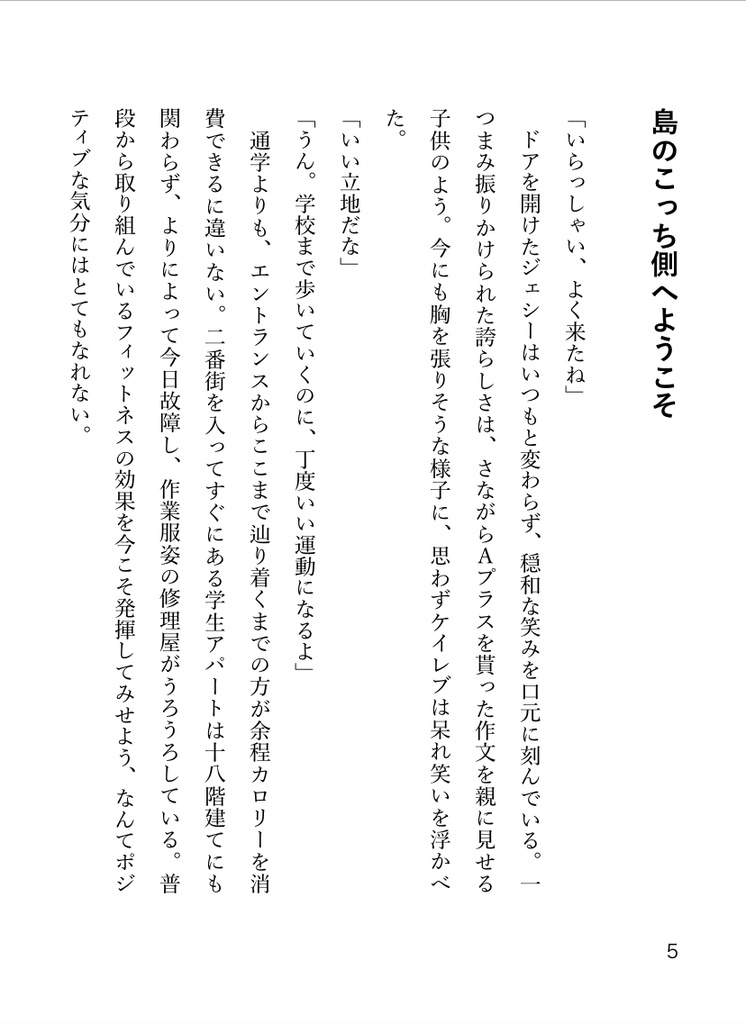 島のこっち側へようこそ
「いらっしゃい、よく来たね」
　ドアを開けたジェシーはいつもと変わらず、穏和な笑みを口元に刻んでいる。一
つまみ振りかけられた誇らしさは、さながらAプラスを貰った作文を親に見せる
子供のよう。今にも胸を張りそうな様子に、思わずケイレブは呆れ笑いを浮かべ
た。
「いい立地だな」
「うん。学校まで歩いていくのに、丁度いい運動になるよ」
　通学よりも、エントランスからここまで辿り着くまでの方が余程カロリーを消
費できるに違いない。二番街を入ってすぐにある学生アパートは十八階建てにも
関わらず、よりによって今日故障し、作業服姿の修理屋がうろうろしている。普
段から取り組んでいるフィットネスの効果を今こそ発揮してみせよう、なんてポジ
ティブな気分にはとてもなれない。
5